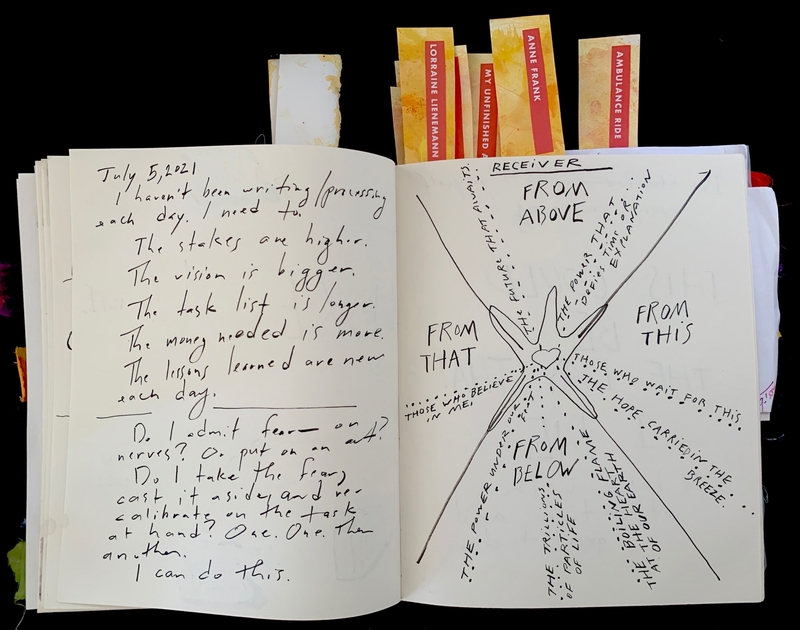 LORRAINE LIENEMANN
MY UNFINISHED A
ANNE FRANK
AMBULANCE RIDE
July 5, 2021
I haven't been writing/processing
each day. I need to.
The stakes are higher.
The vision is bigger.
The task list is longer.
The money needed is more.
The lessons learned are new
each day.
Do I admit fear — on
nerves? Or put on an act?
Do I take the fear,
cast it aside, and re-
calibrate on the task
at hand? One. One. Then
another.
I can do this.
RECEIVER
FROM
ABOVE
THE FUTURE THAT AWAITS...
THE POWER THAT
DEFIES TIME OR...
EXPLANATION
FROM
THAT
FROM
THIS
THOSE WHO BELIEVE
IN ME.
THOSE WHO WAIT FOR THIS.
THE HOPE CARRIED IN THE
BREEZE.
FROM
BELOW
THE POWER UNDER OUR
FEET
THE TRILLIONS
OF PARTICLES
OF LIFE
THE BOILING FLAME
AT THE HEARTH
OF OUR EARTH